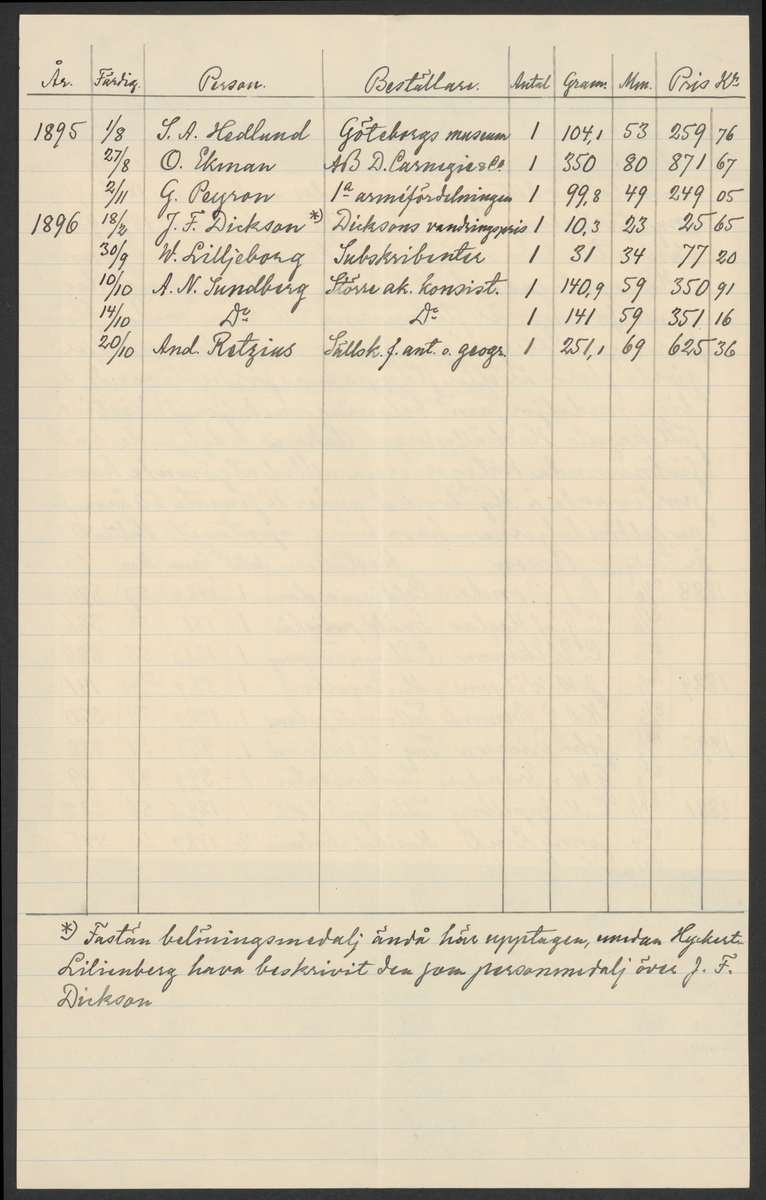 År. Färdig. Person. Beställare. Antal Gram. Mm. Pris Kr.
1895 1/8 S. A. Hedlund Göteborgs museum 1 104,1 53 259 76
27/8 O. Ekman AB D. Carnegie & Co 1 350 80 871 67
2/11 G. Peyron 1a arméfördelningen 1 99,8 49 249 05
1896 18/2 J. F. Dickson *) Dicksons vandringspris 1 10,3 23 25 65
30/9 W. Lilljeborg Subskribenter 1 31 34 77 20
10/10 A. N. Sundberg Större ak. konsist. 1 140,9 59 350 91
14/10 Do Do 1 141 59 351 16
20/10 And. Retzius Sällsk. f. ant. o. geogr. 1 251,1 69 625 36
*) Fastän belöningsmedalj ändå här upptagen, medan Hyckert-
Lilienberg hava beskrivit den som personmedalj över J. F.
Dickson